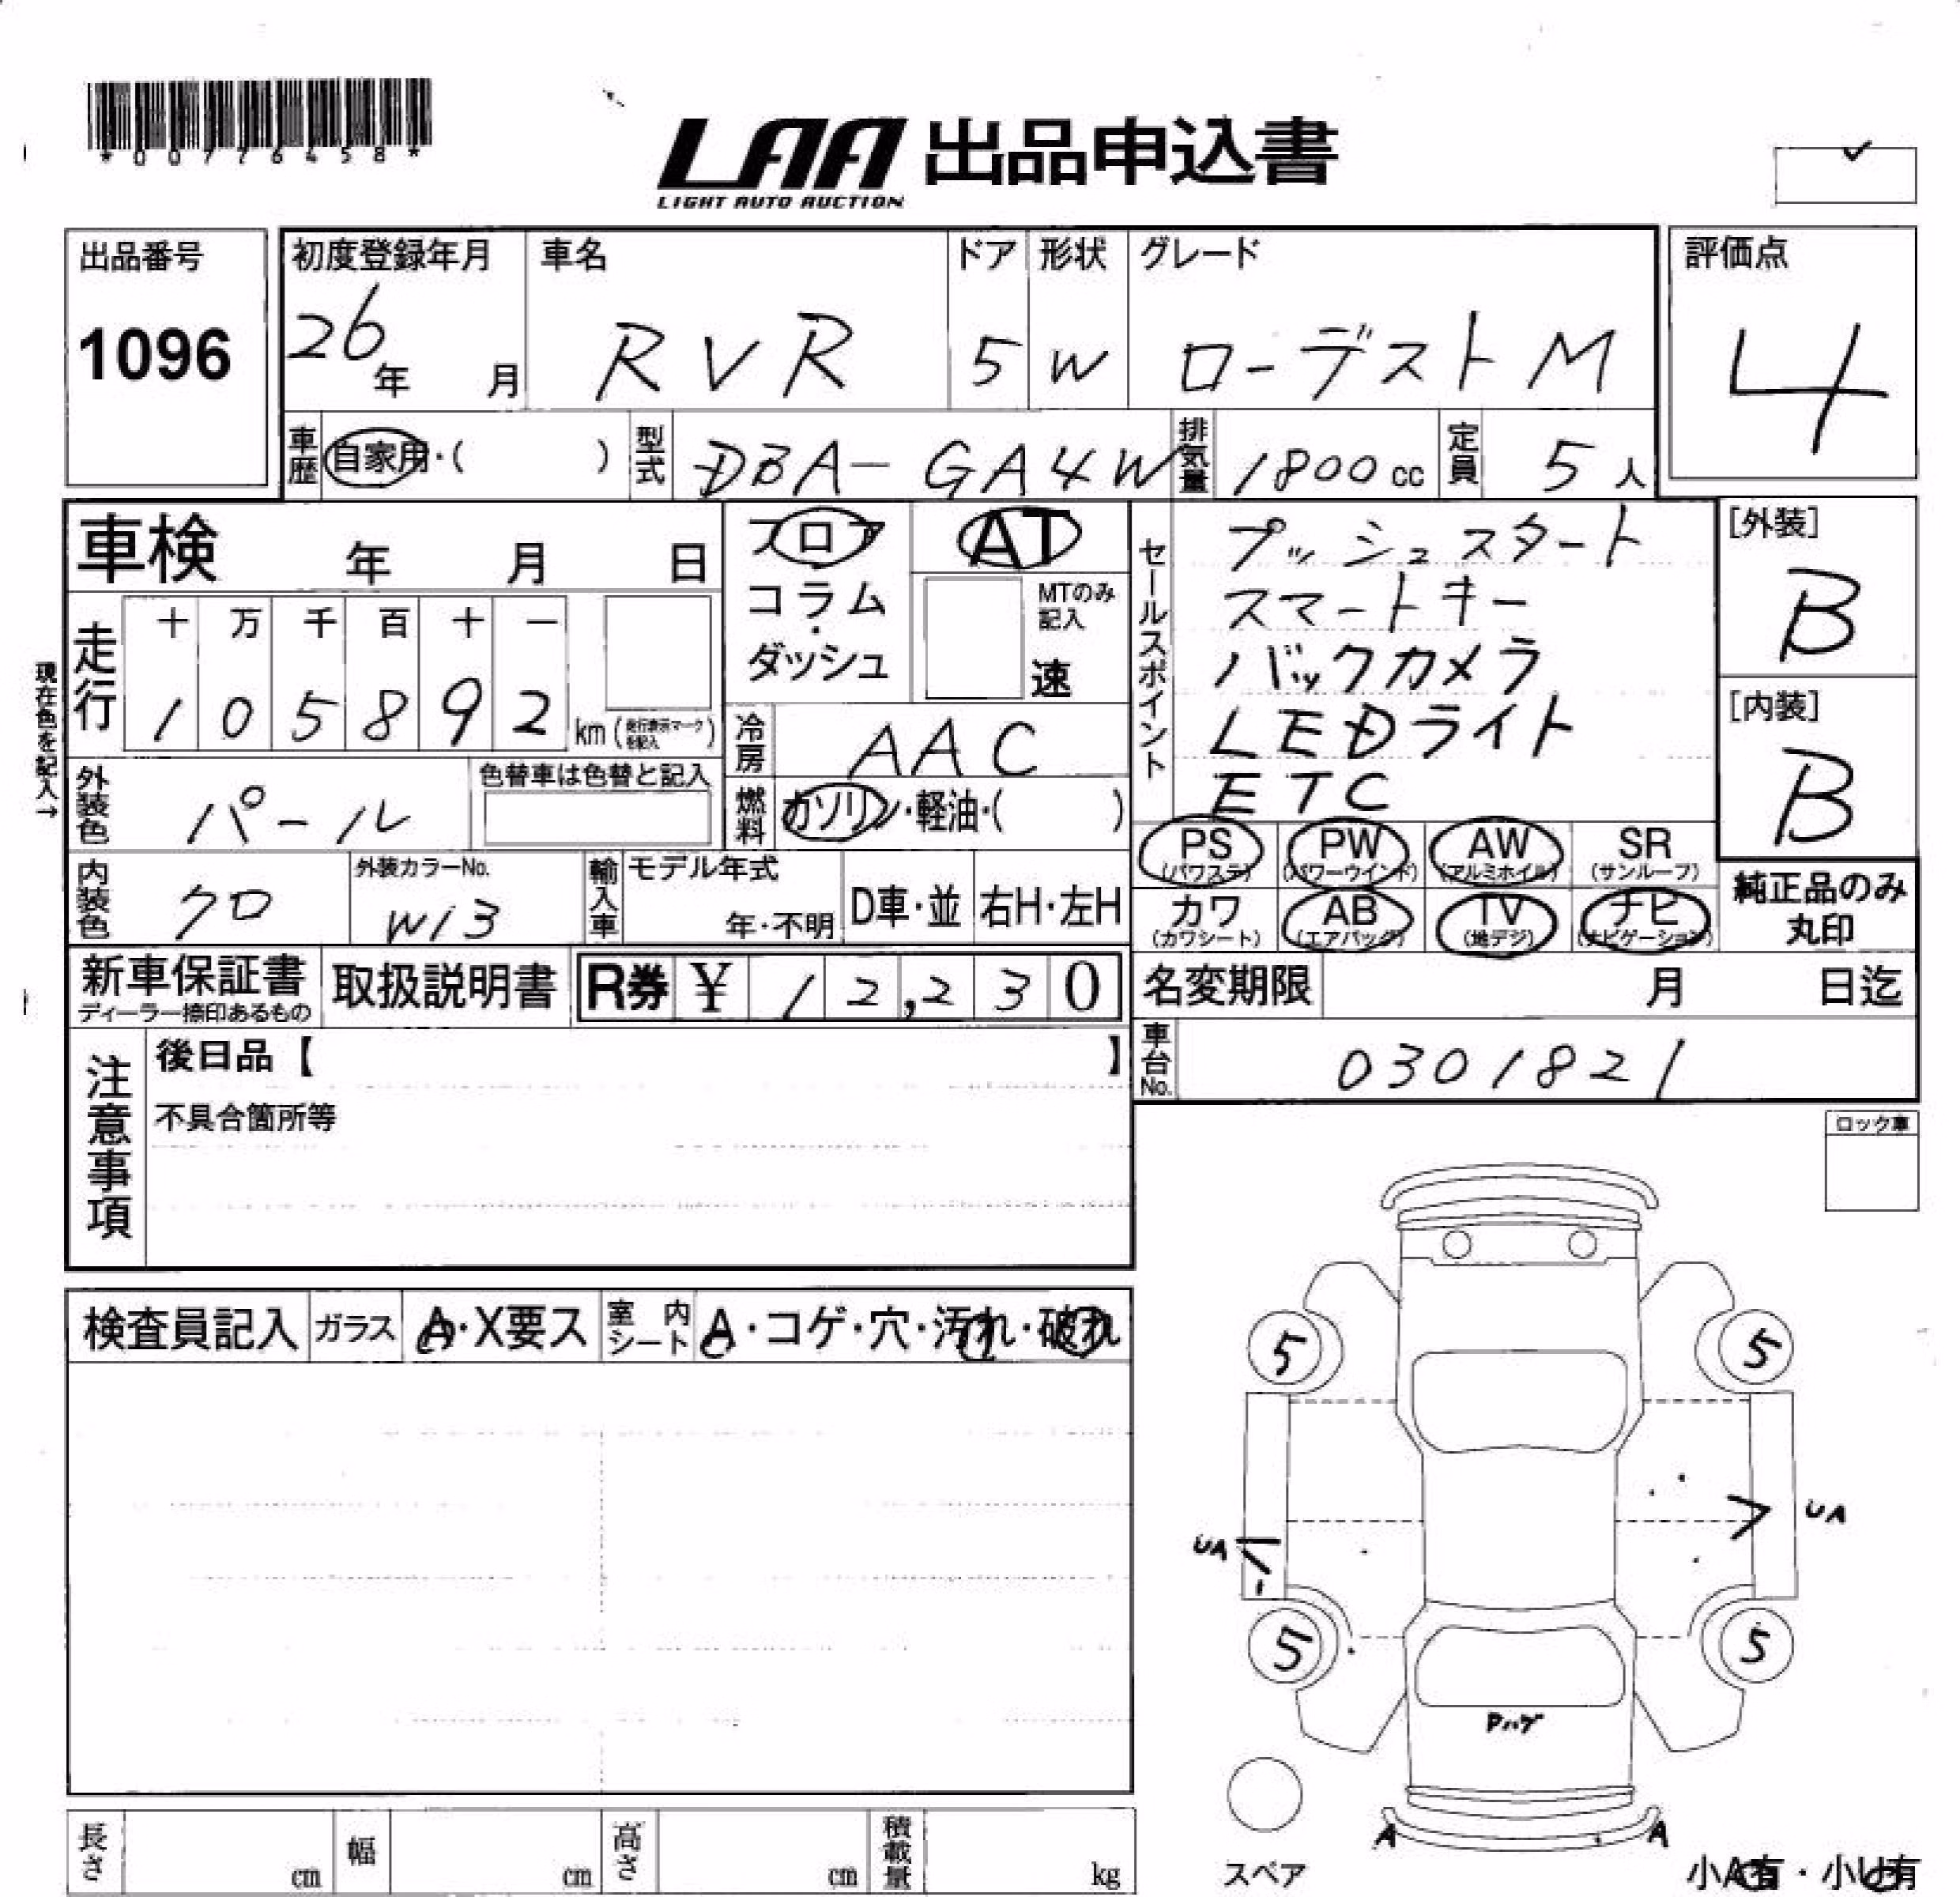 *00776458*
LAA 出品申込書
LIGHT AUTO AUCTION
出品番号
1096
初度登録年月
26年 月
車名
RVR
ドア
5
形状
W
グレード
ローデストM
評価点
4
車歴 自家用・( )
型式 DBA-GA4W
排気量 1800cc
定員 5人
車検 年 月 日
フロア
コラム
・
ダッシュ
AT
MTのみ
記入
速
セールスポイント
プッシュスタート
スマートキー
バックカメラ
LEDライト
ETC
[外装]
B
[内装]
B
現在色を記入→
走行
十 万 千 百 十 一
1 0 5 8 9 2 km(走行表示マークを記入)
冷房 AAC
外装色 パール
色替車は色替と記入
燃料 ガソリン・軽油・( )
PS (パワステ)
PW (パワーウインド)
AW (アルミホイル)
SR (サンルーフ)
カワ (カワシート)
AB (エアバッグ)
TV (地デジ)
ナビ (ナビゲーション)
純正品のみ
丸印
内装色 クロ
外装カラーNo.
W13
輸入車
モデル年式
年・不明
D車・並
右H・左H
新車保証書
ディーラー捺印あるもの
取扱説明書
R券 ¥ 12,230
名変期限 月 日迄
車台No. 0301821
注意事項
後日品【 】
不具合箇所等
ロック車
検査員記入
ガラス A・X要ス
室内シート A・コゲ・穴・汚れ・破れ
5
5
UA
UA
5
5
Pハゲ
A
A
スペア
小A有・小U有
長さ cm
幅 cm
高さ cm
積載量 kg